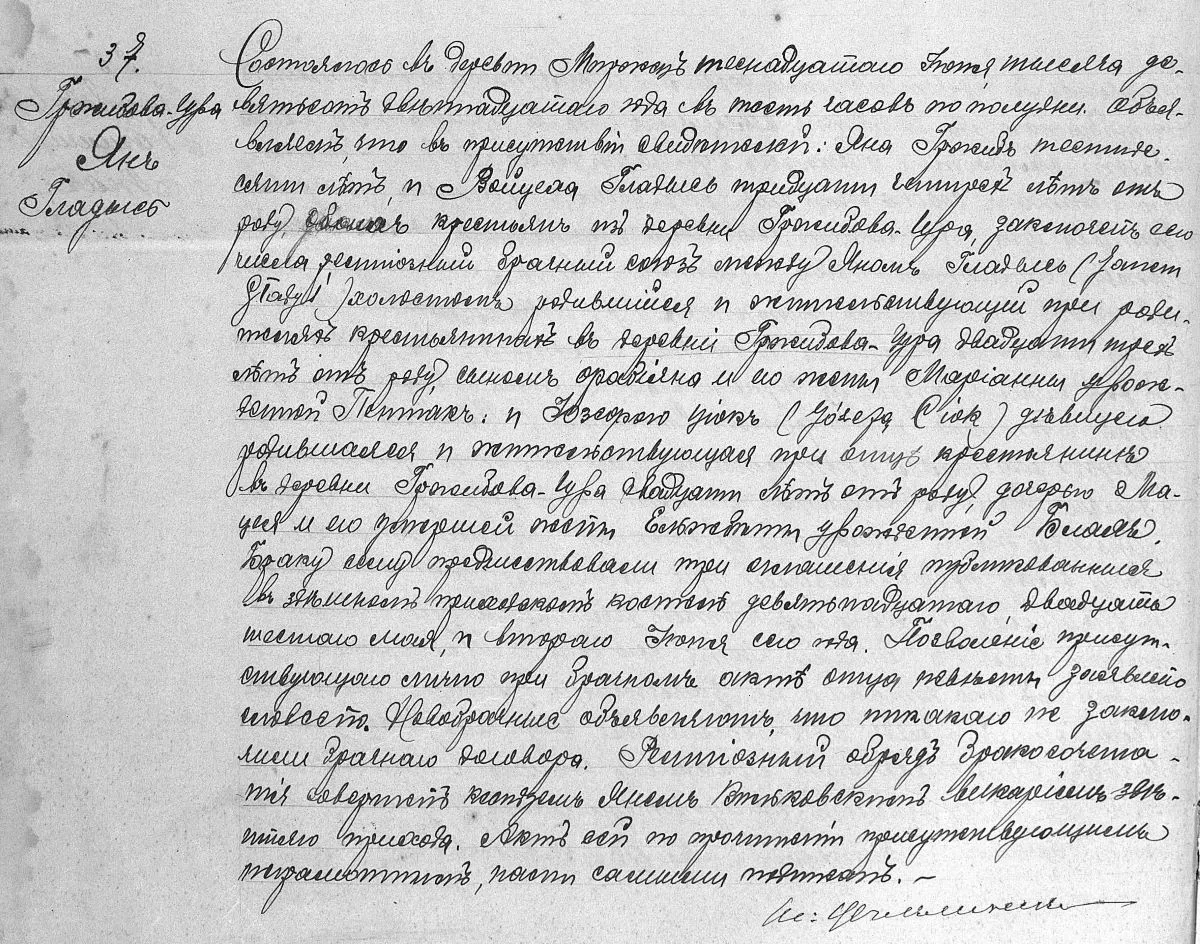 37.
Гржибова-Гура
Янъ
Гладысь
Состоялось въ деревни Мирожец шеснадцатаго Іюня тысяча де-
вятьсотъ двѣнадцатаго года въ шесть часовъ по полудни. Объя-
вляемъ, что въ присутствіи свидѣтелей: Яна Гржибъ шестиде-
сяти лѣтъ, и Войцеха Гладысь тридцати четырехъ лѣтъ отъ
роду, обоихъ крестьянъ изъ деревни Гржибова-Гура, заключенъ сего
числа религіозный брачный союзъ между Яномъ Гладысь (Janem
Gładyś) холостымъ родившійся и жительствующій при роди-
теляхъ крестьянинахъ въ деревни Гржибова-Гура двадцати трехъ
лѣтъ отъ роду, сыномъ Фабіяна и его жены Маріанны урож-
денной Пентакъ: и Юзефою Ціокъ (Józefą Ciok) дѣвицею
родившаяся и жительствующая при отцѣ крестьянинѣ
въ деревни Гржибова-Гура двадцати лѣтъ отъ роду, дочерью Ма-
цея и его умершей жены Ельжбеты урожденной Блажъ.
Браку сему предшествовали три оглашенія публикованныя
въ здѣшномъ приходскомъ костелѣ девятьнадцатаго, двадцать
шестаго мая, и втораго Іюня сего года. Позволеніе присут-
ствующаго лично при брачномъ актѣ отца невѣсты заявлено
словесно. Новобрачные объявляютъ, что никакаго не заклю-
чили брачнаго договора. Религіозный обрядъ бракосочета-
нія совершенъ ксендземъ Яномъ викаріемъ здѣ-
шняго прихода. Актъ сей по прочтеніи присутствующимъ
неграмотнымъ, нами самими подписанъ. —